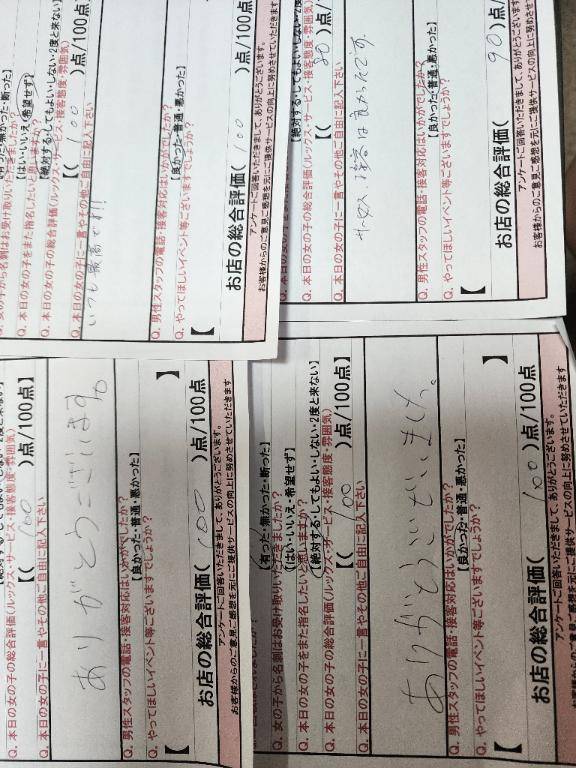 【はい・いいえ・希望せず】
Q. 本日の女の子をまた指名したいと思いますか？
【絶対する・してもよい・しない・2度と来ない】
Q. 本日の女の子の総合評価(ルックス・サービス・接客態度・雰囲気)
【( 100 )点/100点】
Q. 本日の女の子に一言やその他ご自由に記入下さい
いつも最高です!!
Q. 男性スタッフの電話・接客対応はいかがでしたか？
【良かった・普通・悪かった】
Q. やってほしいイベント等ございますでしょうか？
【
お店の総合評価( 100 )点/100点
アンケートご回答いただきまして、ありがとうございます。
お客様からのご意見ご感想を元にご提供サービスの向上に努めさせていただきます
【絶対する・してもよい・しない・2度と来ない】
Q. 本日の女の子の総合評価(ルックス・サービス・接客態度・雰囲気)
【( 80 )点/100点】
Q. 本日の女の子に一言やその他ご自由に記入下さい
サービス、接客は良かったです。
Q. 男性スタッフの電話・接客対応はいかがでしたか？
【良かった・普通・悪かった】
Q. やってほしいイベント等ございますでしょうか？
【
お店の総合評価( 90 )点/100点
アンケートご回答いただきまして、ありがとうございます。
お客様からのご意見ご感想を元にご提供サービスの向上に努めさせていただ
Q. 本日の女の子の総合評価(ルックス・サービス・接客態度・雰囲気)
【( 100 )点/100点】
Q. 本日の女の子に一言やその他ご自由に記入下さい
ありがとうございます。
Q. 男性スタッフの電話・接客対応はいかがでしたか？
【良かった・普通・悪かった】
Q. やってほしいイベント等ございますでしょうか？
【 】
お店の総合評価( 100 )点/100点
アンケートご回答いただきまして、ありがとうございます。
お客様からのご意見ご感想を元にご提供サービスの向上に努めさせていただきます
【有った・無かった・断った】
Q. 女の子から名刺はお受け取りいただきましたか？
【はい・いいえ・希望せず】
Q. 本日の女の子をまた指名したいと思いますか？
【絶対する・してもよい・しない・2度と来ない】
Q. 本日の女の子の総合評価(ルックス・サービス・接客態度・雰囲気)
【( 100 )点/100点】
Q. 本日の女の子に一言やその他ご自由に記入下さい
ありがとうございました。
Q. 男性スタッフの電話・接客対応はいかがでしたか？
【良かった・普通・悪かった】
Q. やってほしいイベント等ございますでしょうか？
【 】
お店の総合評価( 100 )点/100点
アンケートご回答いただきまして、ありがとうございます。
お客様からのご意見ご感想を元にご提供サービスの向上に努めさせていただきます